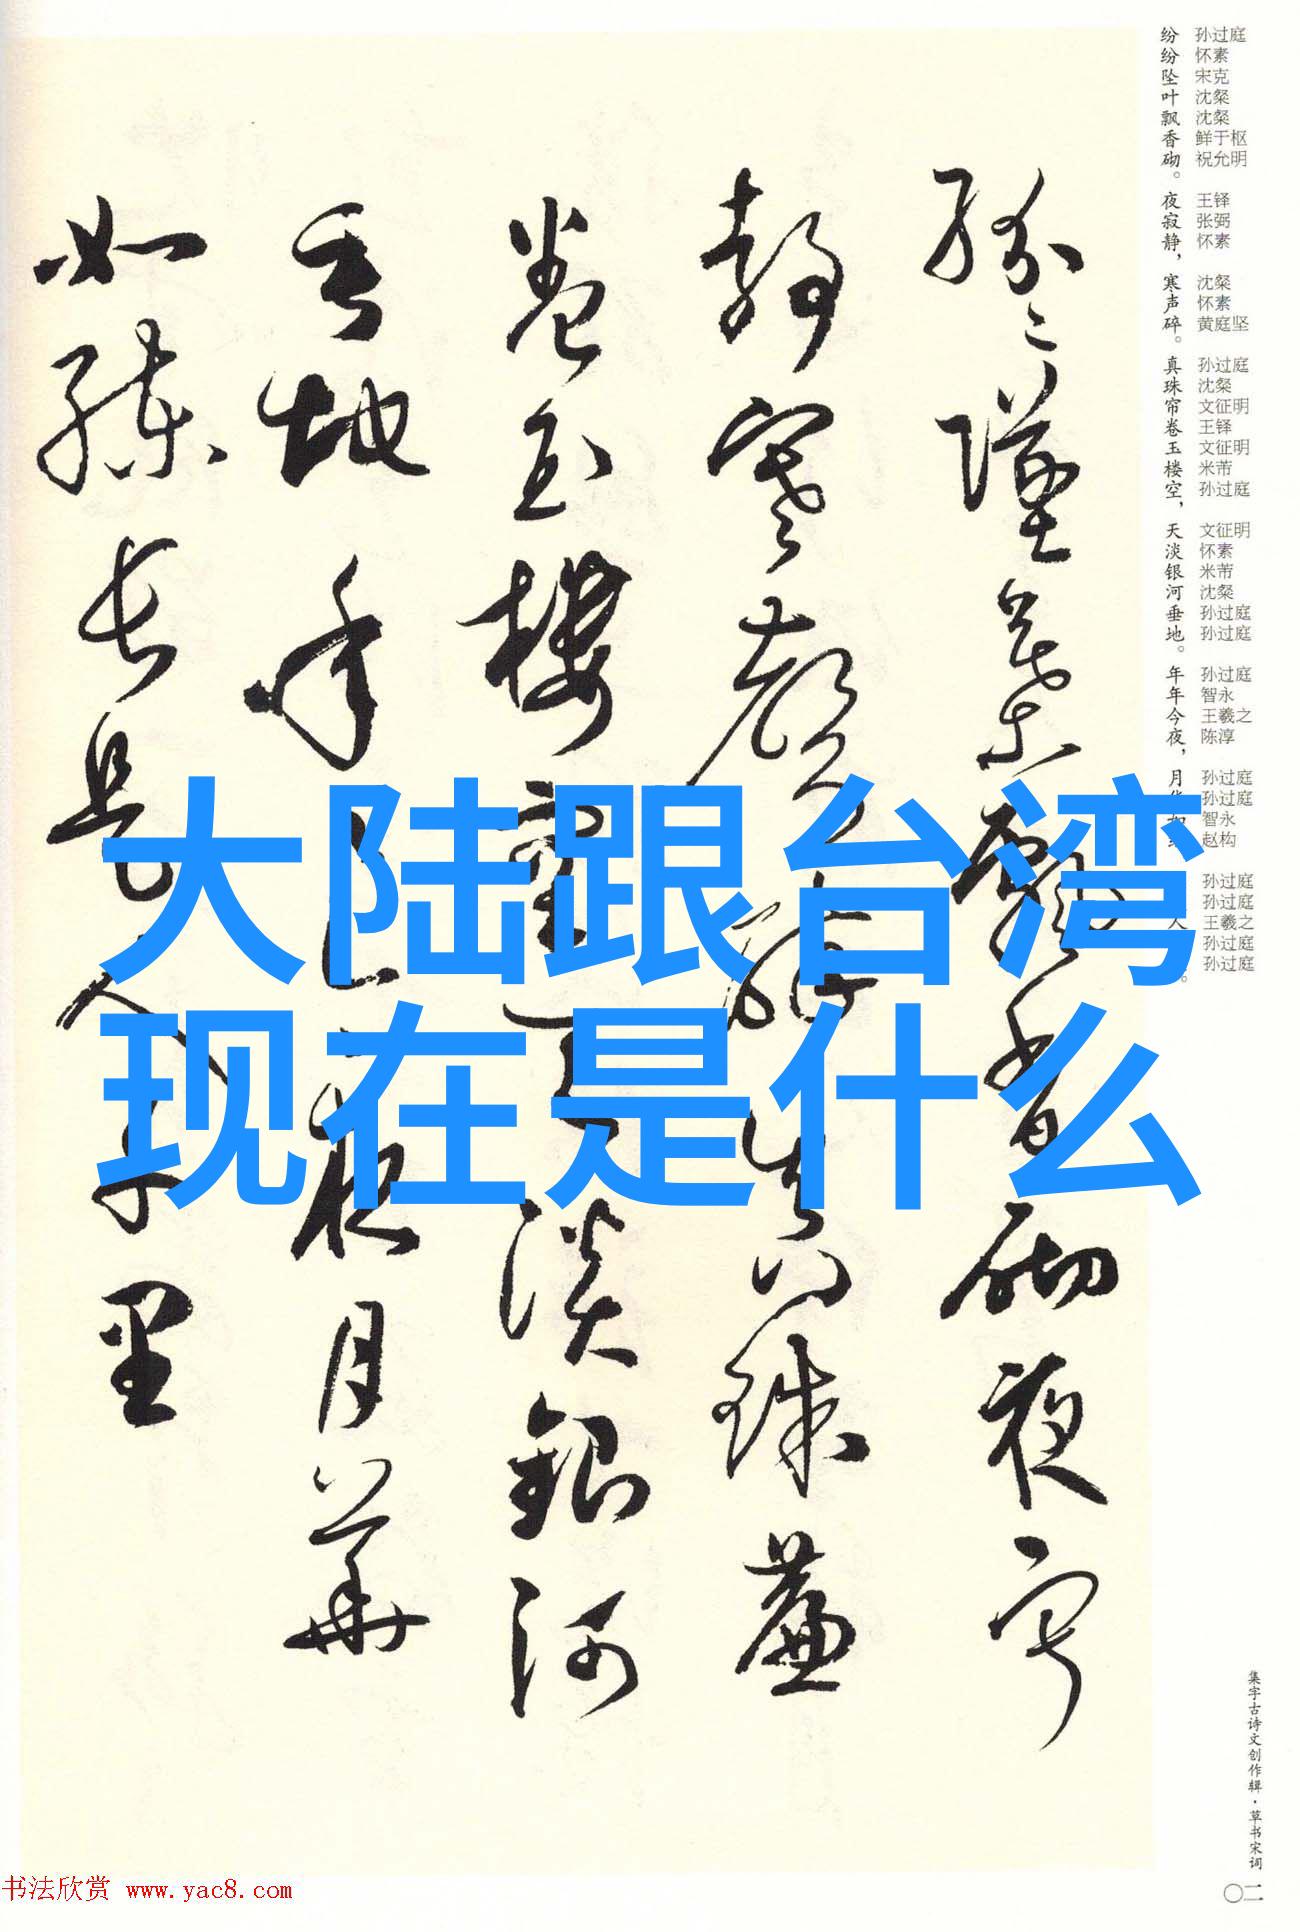 大陆跟台湾
现在是什么
纷纷坠叶飘香砌。夜寂静，寒声碎。真珠帘卷玉楼空，天淡银河垂地。年年今夜，月
孙过庭 怀素 宋克 沈粲 沈粲 鲜于枢 祝允明 王铎 张弼 怀素 沈粲 怀素 黄庭坚 孙过庭 沈粲 文征明 王铎 文征明 米芾 孙过庭 文征明 怀素 米芾 沈粲 孙过庭 孙过庭 孙过庭 智永 王羲之 陈淳 孙过庭 孙过庭 智永 赵构 孙过庭 孙过庭 王羲之 孙过庭 孙过庭
纷〻坠叶飘香砌夜寂
静寒声碎真珠簾
卷玉楼空天淡銀河
垂地年〻今夜月華
如練長是人千里
集字古诗文创作辑·草书宋词
〇二
书法欣赏 www.yac8.com